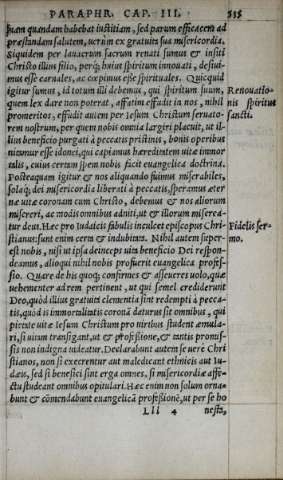 PARAPHR. CAP. III. 535
piam quandam habebat iustitiam, sed parum efficacem ad
præstandam salutem, uerùm ex gratuita sua misericordia.
Siquidem per lauacrum sacrum renati sumus & insiti
Christo illius filio, perq́; huius spiritum innouati, desiui-
mus esse carnales, ac cœpimus esse spirituales. Quicquid
igitur sumus, id totum illi debemus, qui spiritum suum,
quem lex dare non poterat, affatim effudit in nos, nihil
promeritos, effudit autem per Iesum Christum seruato-
rem nostrum, per quem nobis omnia largiri placuit, ut il-
lius beneficio purgati à peccatis pristinis, bonis operibus
nitamur esse idonei, qui capiamus hæreditatem uitæ immor
talis, cuius certam spem nobis facit euangelica doctrina.
Posteaquam igitur & nos aliquando fuimus miserabiles,
solaq́; dei misericordia liberati à peccatis, speramus æter
næ uitæ coronam cum Christo, debemus & nos aliorum
misereri, ac modis omnibus adniti, ut & illorum miserea-
tur deus. Hæc pro Iudaicis fabulis inculcet episcopus Chri-
stianus: sunt enim certa & indubitata. Nihil autem super-
est nobis, nisi ut ipsa deinceps uita beneficio Dei respon-
deamus, alioqui nihil nobis profuerit euangelica profes-
sio. Quare de his quoq; confirmes & asseueres uolo, quæ
uehementer ad rem pertinent, ut qui semel crediderunt
Deo, quòd illius gratuita clementia sint redempti à pecca-
tis, quòd is immortalitatis coronã daturus sit omnibus, qui
pietate uitæ Iesum Christum pro uiribus student æmula-
ri, si uitam transigant, ut & professione, & tantis promis-
sis non indigna uideatur. Declarabunt autem se uerè Chri
stianos, non si execrentur aut maledicant ethnicis aut Iu-
dæis, sed si benefici sint erga omnes, si misericordiæ affe-
ctu studeant omnibus opitulari. Hæc enim non solum orna-
bunt & cōmendabunt euangelicã professionē, ut per se ho
Renouatio-
nis spiritus
sancti.
Fidelis ser-
mo.
Lll 4 nesta,